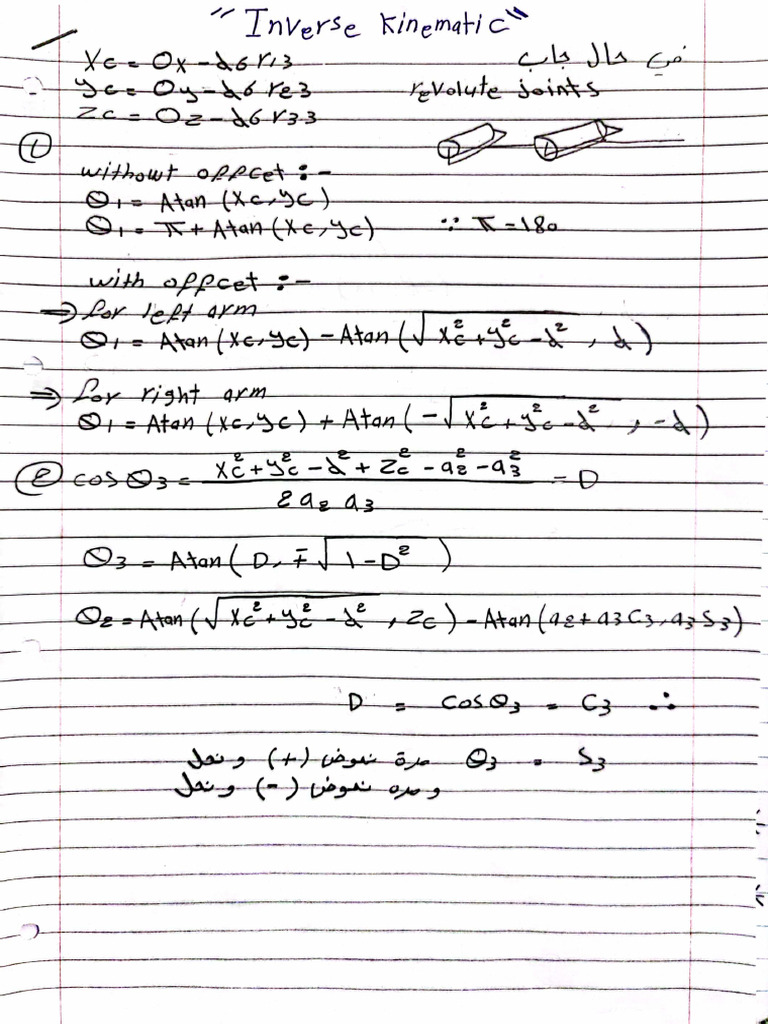 "Inverse Kinematic"
Xc = Ox - d6 r13
في حال جاب
yc = Oy - d6 r23
revolute joints
Zc = Oz - d6 r33
①
without offcet :-
θ1 = Atan (Xc, yc)
θ1 = π + Atan (Xc, yc) ∵ π = 180
with offcet :-
⇒ for left arm
θ1 = Atan (Xc, yc) - Atan (√(Xc² + yc² - d²), d)
⇒ for right arm
θ1 = Atan (Xc, yc) + Atan (-√(Xc² + yc² - d²), -d)
② cos θ3 = (Xc² + yc² - d² + Zc² - a2² - a3²) / (2 a2 a3) = D
θ3 = Atan (D, ∓√(1 - D²))
θ2 = Atan (√(Xc² + yc² - d²), Zc) - Atan (a2 + a3 C3, a3 S3)
D = cos θ3 = C3 ∴
S3 = θ3 مرة نعوض (+) و نحل
و مره نعوض (-) و نحل